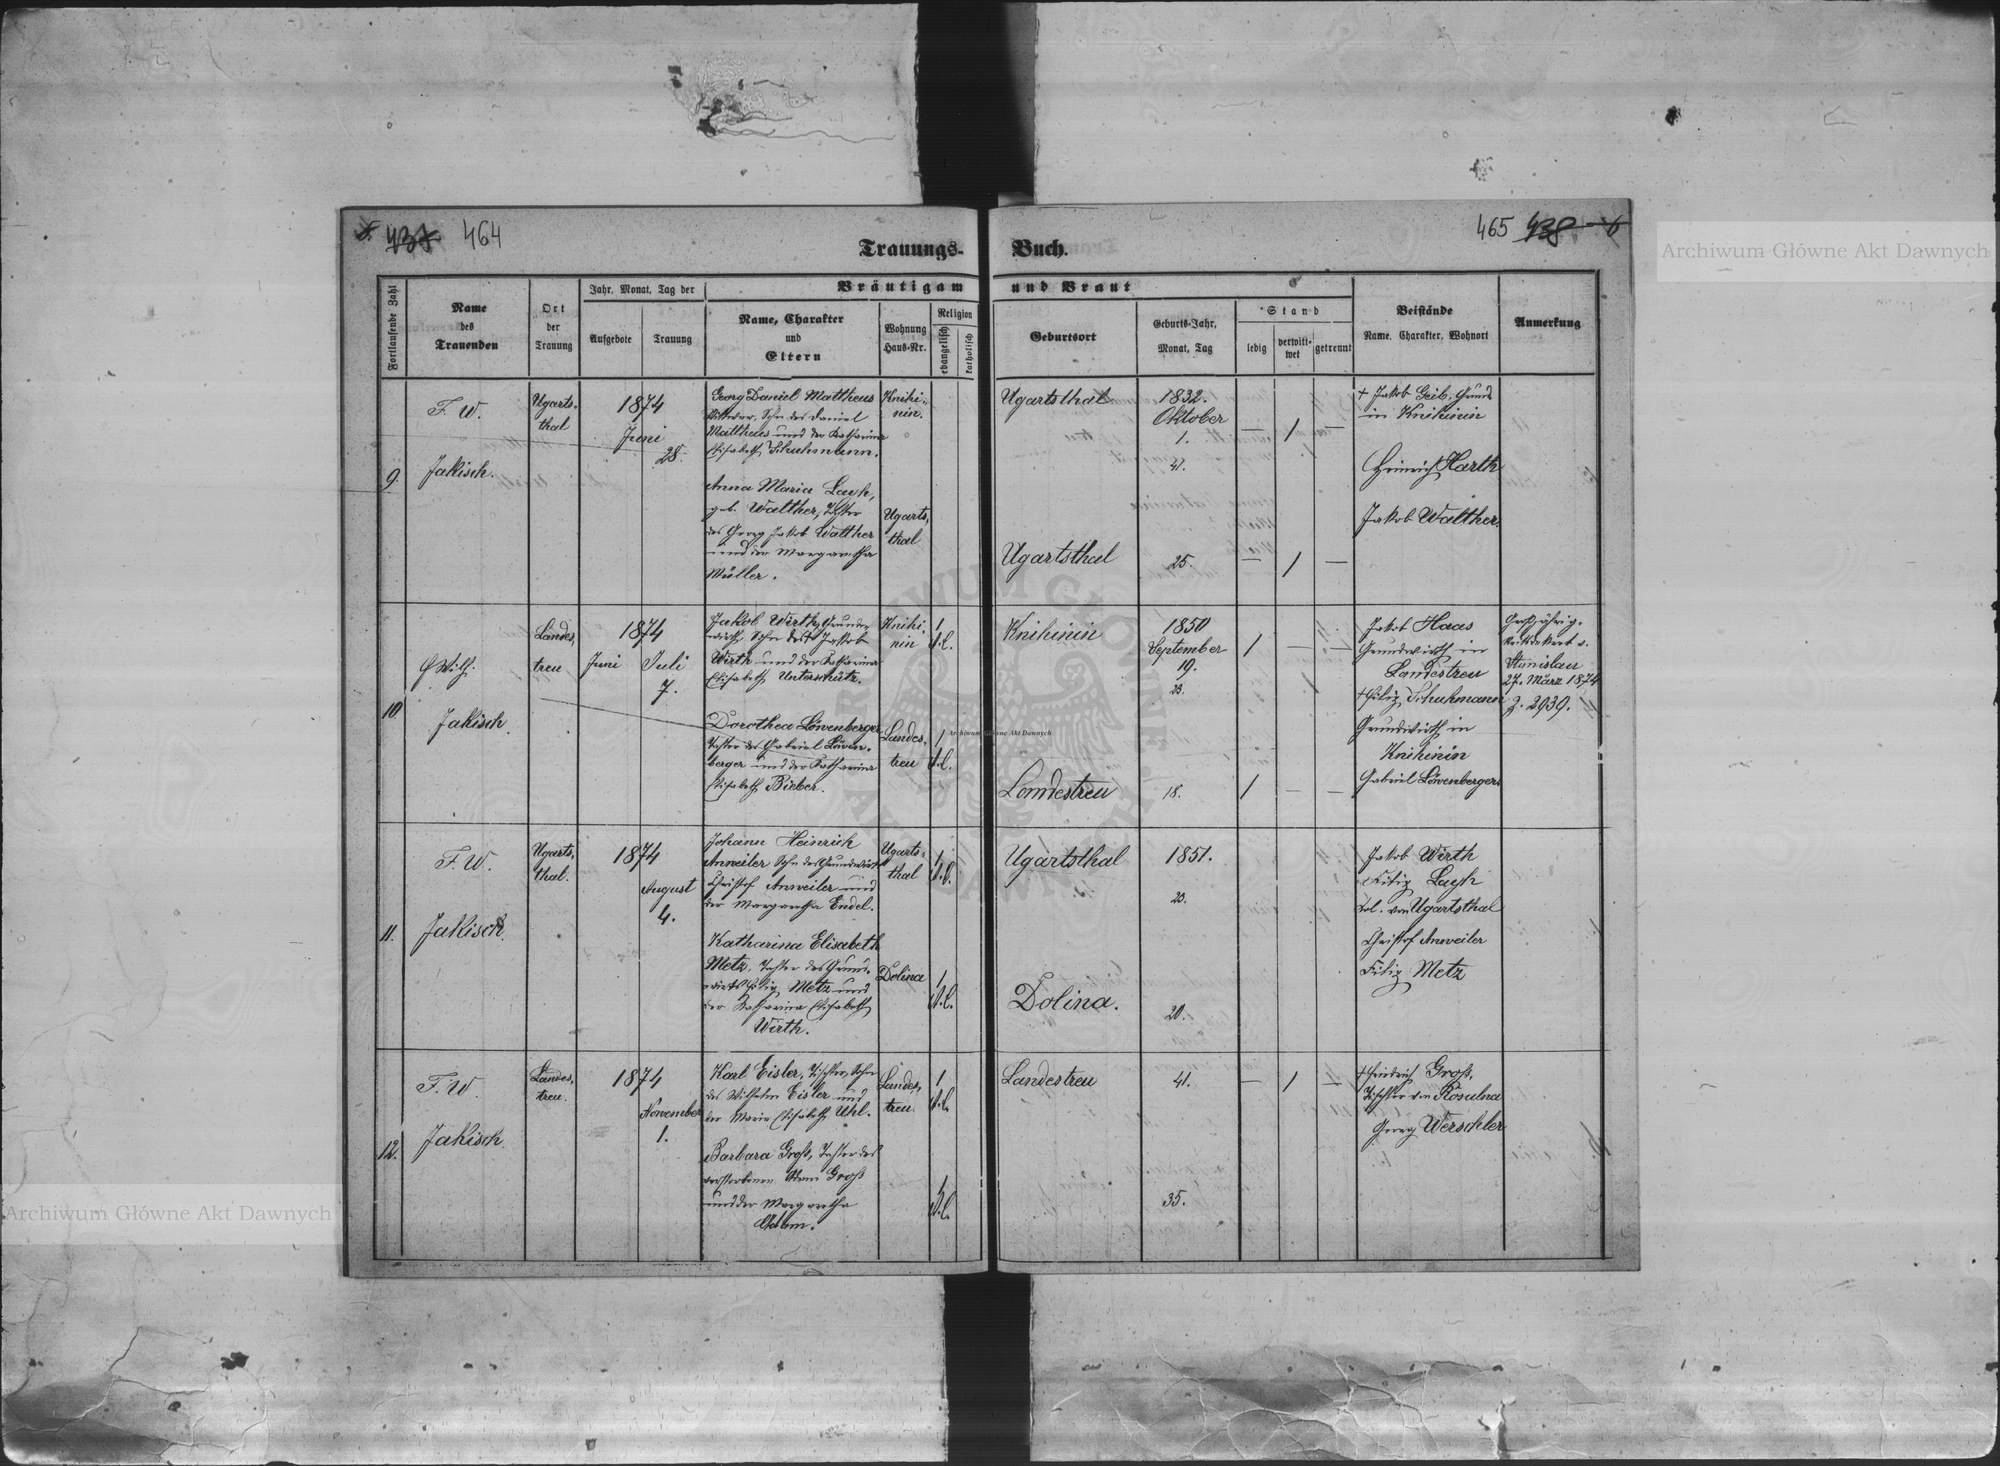 464
465
Trauungs-
Buch.
Fortlaufende Zahl
Name
des
Trauenden
Ort
der
Trauung
Jahr, Monat, Tag der
Aufgebote
Trauung
Bräutigam
und Braut
Name, Charakter
und
Eltern
Wohnung
Haus-Nr.
Religion
evangelisch
katholisch
Geburtsort
Geburts-Jahr,
Monat, Tag
Stand
ledig
verwitt-
wet
getrennt
Beistände
Name, Charakter, Wohnort
Anmerkung
9.
F. W.
Jakisch.
Ugarts-
thal
1874
Juni
28.
Georg Daniel Mattheus
Sohn des Daniel
Mattheus und der Katharina
Elisabeth Schuhmann.
Knihi-
nin.
Anna Maria Layh,
geb. Walther, Tochter
des Georg Jakob Walther
und der Margaretha
Müller.
Ugarts-
thal
Ugartsthal
1832.
Oktober
1.
41.
— 1 —
Ugartsthal
25.
— 1 —
+ Jakob Geib, Grundw
in Knihinin
Heinrich Harth
Jakob Walther.
10
Wilh.
Jakisch.
Landes-
treu
1874
Juni
Juli
7.
Jakob Wirth, Grund-
wirth, Sohn des + Jakob
Wirth und der Katharina
Elisabeth Unterschütz.
Knihi-
nin
1
A.C.
Dorothea Löwenberger
Tochter des Gabriel Löwen-
berger und der Katharina
Elisabeth Bieber.
Landes-
treu
1
A.C.
Knihinin
1850
September
19.
23.
1 — —
Landestreu
18.
1 — —
Jakob Haas
Grundwirth in
Landestreu
+ Filip Schuhmann
Grundwirth in
Knihinin
Gabriel Löwenberger
Großjährig-
Stanislau
27. März 1874
Z. 2939.
11.
F. W.
Jakisch.
Ugarts-
thal.
1874
August
4.
Johann Heinrich
Anweiler Sohn des Grundwirth
Christof Anweiler und
der Margaretha Endel.
Ugarts-
thal
1
A.C.
Katharina Elisabeth
Metz, Tochter des Grund-
wirths Filip Metz und
der Katharina Elisabeth
Wirth.
Dolina
1
A.C.
Ugartsthal
1851.
23.
Dolina.
20.
Jakob Wirth
Filip Layh
Col. von Ugartsthal
Christof Anweiler
Filip Metz
12.
F. W.
Jakisch.
Landes-
treu.
1874
November
1.
Karl Eisler, Tischler, Sohn
des Wilhelm Eisler und
der Maria Elisabeth Uhl.
Landes-
treu.
1
A.C.
Barbara Groß, Tochter des
verstorbenen Groß
und der Margaretha
Adam.
A.C.
Landestreu
41.
— 1 —
35.
+ Friedrich Groß,
Tischler von Rosulna
Georg Werschler
Archiwum Główne Akt Dawnych
Archiwum Główne Akt Dawnych
Archiwum Główne Akt Dawnych